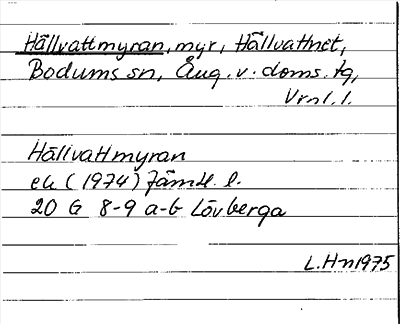 Hällvattmyran, myr, Hällvattnet,
Bodums sn, Ång. v. doms. tg,
Vrnl. l.
Hällvattmyran
ek (1974) Jämtl. l.
20 G 8-9 a-b Lövberga
L. Hn 1975